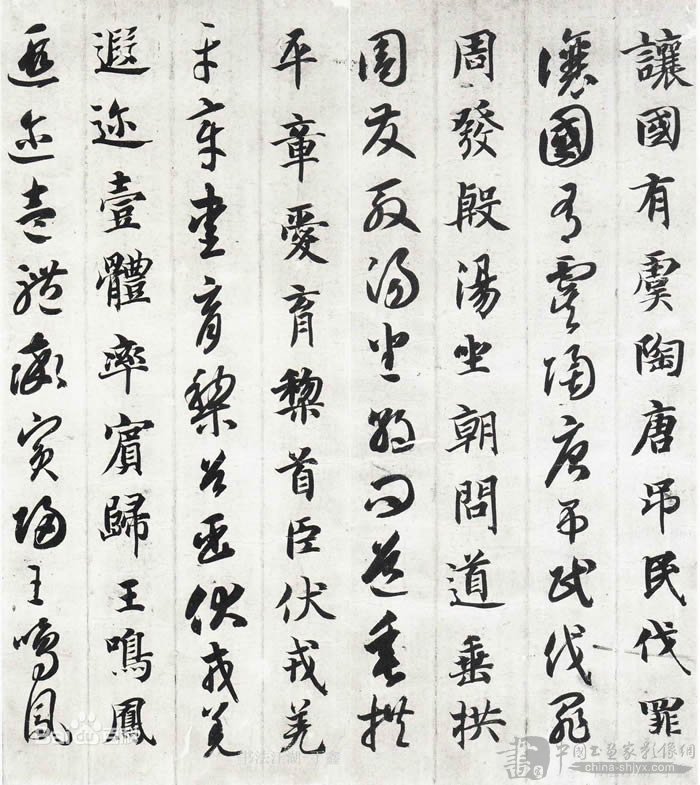 讓國有虞陶唐吊民伐罪
讓國有虞陶唐吊民伐罪
周發殷湯坐朝問道垂拱
周發殷湯坐朝問道垂拱
平章愛育黎首臣伏戎羌
平章愛育黎首臣伏戎羌
遐迩壹體率賓歸王鳴鳳
遐迩壹體率賓歸王鳴鳳
Baidu百科
书法江湖
中國书画家影像網
china-shjyx.com